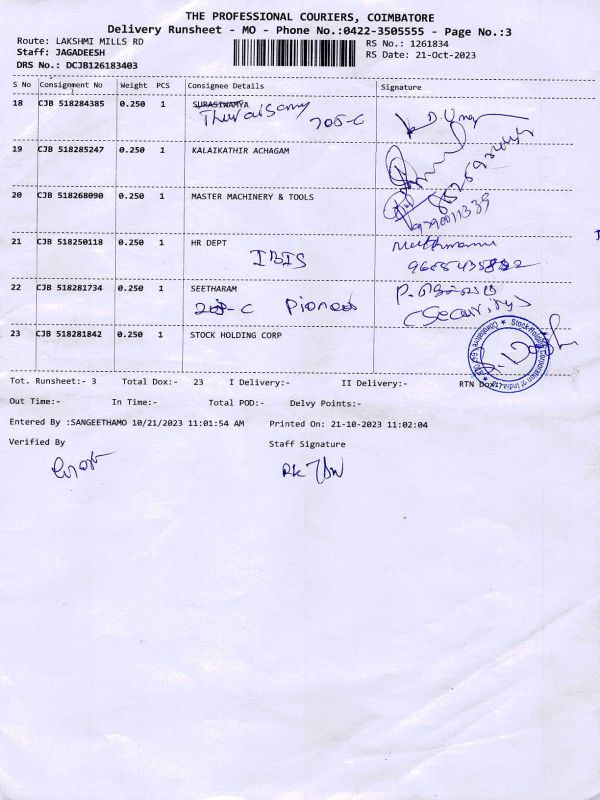 THE PROFESSIONAL COURIERS, COIMBATORE
Delivery Runsheet - MO - Phone No.:0422-3505555 - Page No.:3
Route: LAKSHMI MILLS RD
RS No.: 1261834
Staff: JAGADEESH
RS Date: 21-Oct-2023
DRS No.: DCJB126183403
S No Consignment No Weight PCS Consignee Details Signature
18 CJB 518284385 0.250 1 SURASIWAMYA
Thuraisamy
705-C
19 CJB 518285247 0.250 1 KALAIKATHIR ACHAGAM
20 CJB 518268090 0.250 1 MASTER MACHINERY & TOOLS
21 CJB 518250118 0.250 1 HR DEPT
IBIS
22 CJB 518281734 0.250 1 SEETHARAM
-C Pioneer
(Security)
23 CJB 518281842 0.250 1 STOCK HOLDING CORP
Stock Holding Corporation of India Ltd * Coimbatore
Tot. Runsheet:- 3 Total Dox:- 23 I Delivery:- II Delivery:- RTN Dox:-
Out Time:- In Time:- Total POD:- Delvy Points:-
Entered By :SANGEETHAMO 10/21/2023 11:01:54 AM Printed On: 21-10-2023 11:02:04
Verified By Staff Signature